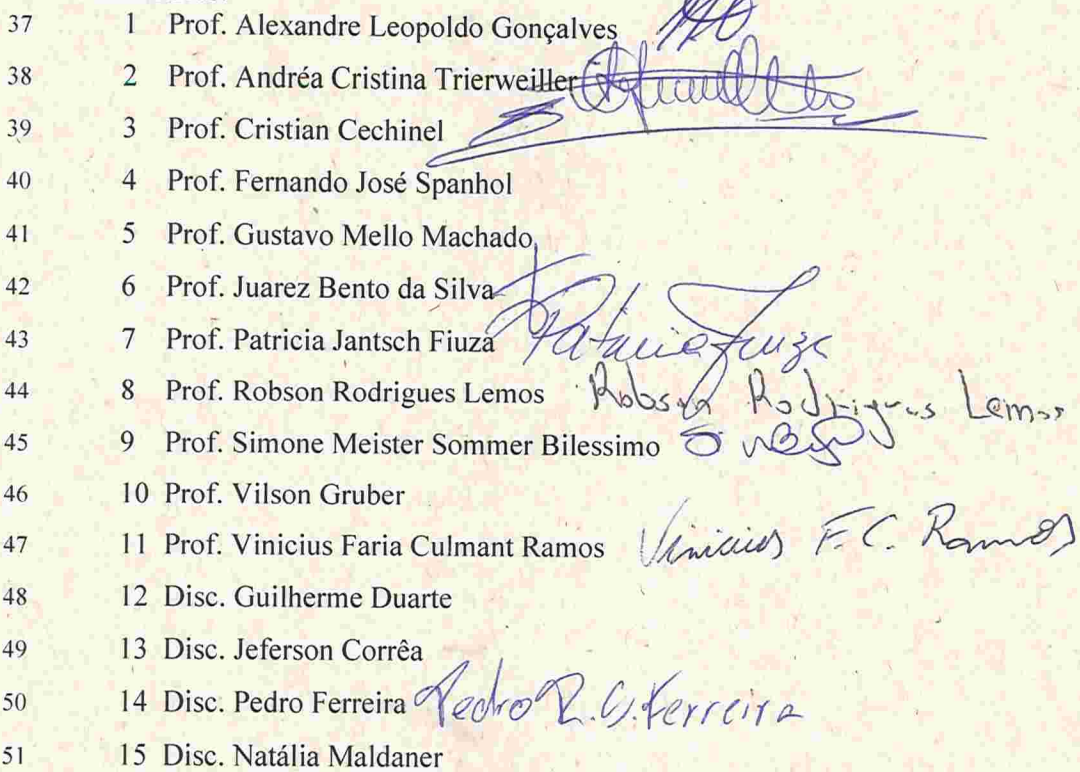 37 1 Prof. Alexandre Leopoldo Gonçalves
38 2 Prof. Andréa Cristina Trierweiller
39 3 Prof. Cristian Cechinel
40 4 Prof. Fernando José Spanhol
41 5 Prof. Gustavo Mello Machado
42 6 Prof. Juarez Bento da Silva
43 7 Prof. Patricia Jantsch Fiuza Patricia Fiuza
44 8 Prof. Robson Rodrigues Lemos Robson Rodrigues Lemos
45 9 Prof. Simone Meister Sommer Bilessimo
46 10 Prof. Vilson Gruber
47 11 Prof. Vinicius Faria Culmant Ramos Vinicius F.C. Ramos
48 12 Disc. Guilherme Duarte
49 13 Disc. Jeferson Corrêa
50 14 Disc. Pedro Ferreira Pedro R. G. Ferreira
51 15 Disc. Natália Maldaner